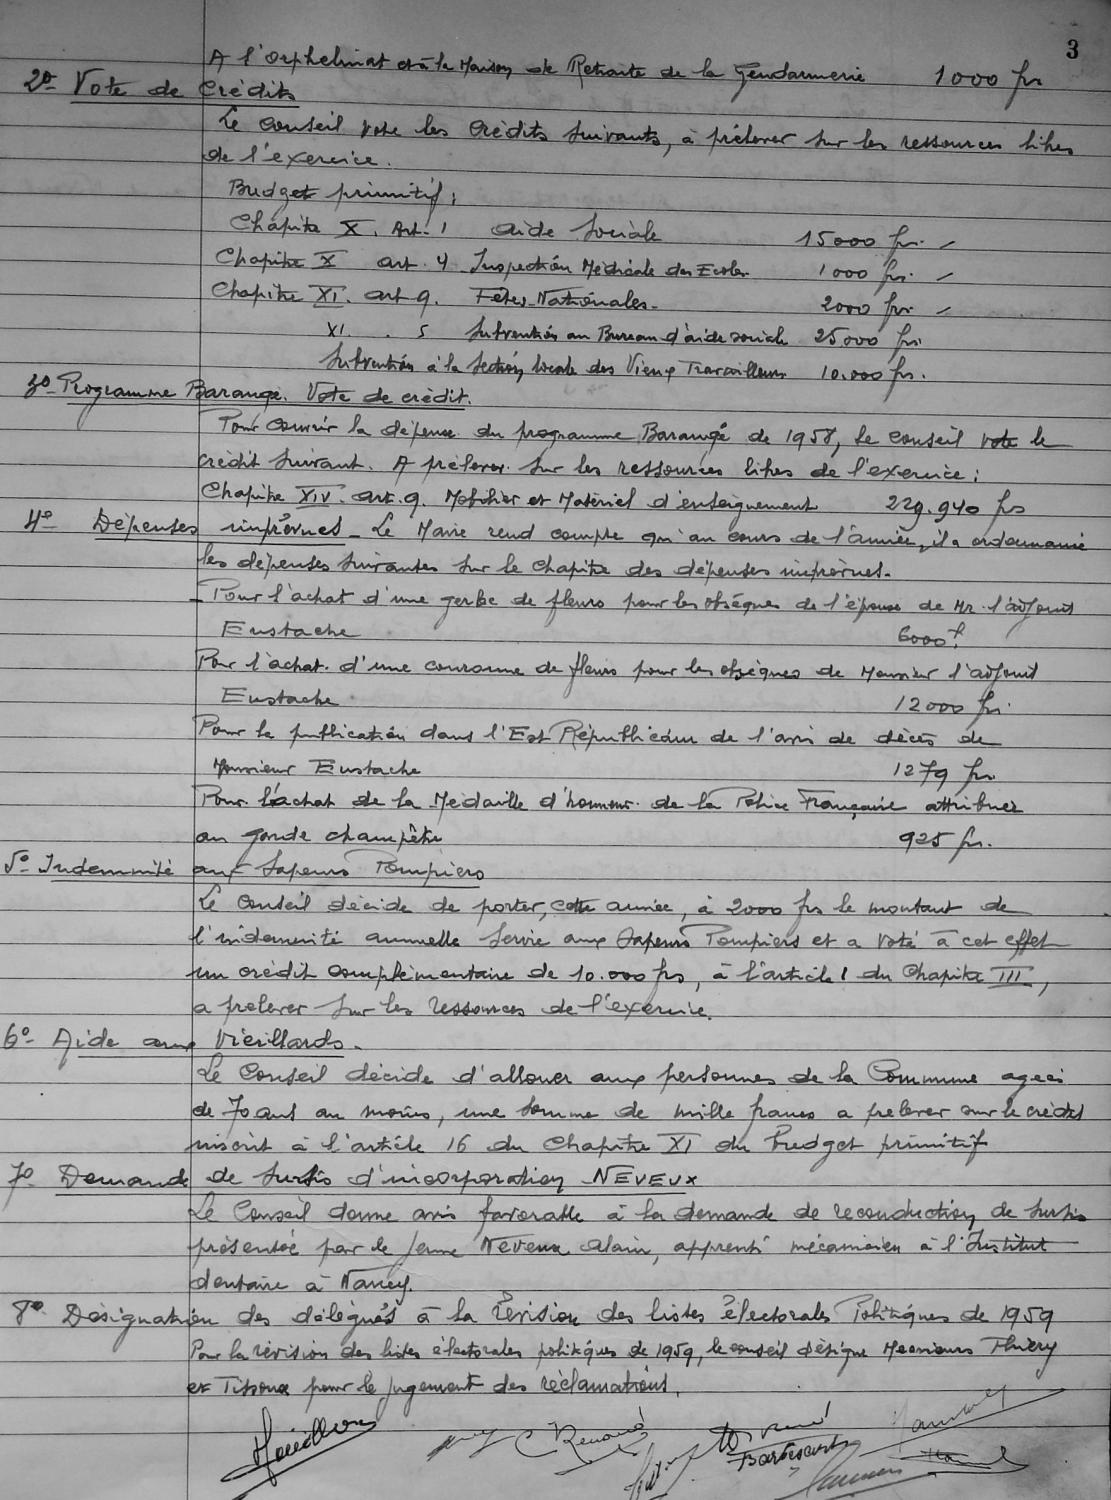 3
A l'Orphelinat et à la Maison de Retraite de la Gendarmerie 1000 frs
2º- Vote de Crédits
Le Conseil vote les Crédits suivants, à prélever sur les ressources libres
de l'exercice.
Budget primitif :
Chapitre X. Art. 1 aide Sociale 15000 frs. -
Chapitre X art. 4 Inspection Médicale des Ecoles 1000 frs. -
Chapitre XI. art 9. Fêtes Nationales. 2000 frs -
XI. . 5 Subvention au Bureau d'aide sociale 25000 frs.
Subvention à la Section locale des Vieux Travailleurs 10.000 frs.
3º- Programme Barangé. Vote de crédit.
Pour couvrir la dépense du programme Barangé de 1958, le conseil vote le
crédit suivant. A prélever sur les ressources libres de l'exercice :
Chapitre XIV. art. 9. Mobilier et Matériel d'enseignement 229.940 frs
4º- Dépenses imprévues - Le Maire rend compte qu'au cours de l'année, il a ordonnancé
les dépenses suivantes sur le chapitre des dépenses imprévues.
- Pour l'achat d'une gerbe de fleurs pour les obsèques de l'épouse de Mr. l'adjoint
Eustache 6000 f.
Pour l'achat d'une couronne de fleurs pour les obsèques de Monsieur l'adjoint
Eustache 12000 frs.
Pour la publication dans l'Est Républicain de l'avis de décès de
Monsieur Eustache 1279 frs
Pour l'achat de la Médaille d'honneur de la Police Française attribuée
au garde champêtre 925 frs.
5º- Indemnité aux Sapeurs Pompiers
Le Conseil décide de porter, cette année, à 2000 frs le montant de
l'indemnité annuelle servie aux Sapeurs Pompiers et a voté à cet effet
un crédit complémentaire de 10.000 frs, à l'article 1 du Chapitre III,
a prélever sur les ressources de l'exercice.
6º- Aide aux Vieillards.
Le Conseil décide d'allouer aux personnes de la Commune agées
de 70 ans au moins, une somme de mille francs a prélever sur le crédit
inscrit à l'article 16 du Chapitre XI du Budget primitif
7º- Demande de Sursis d'incorporation NEVEUX
Le Conseil donne avis favorable à la demande de reconduction de sursis
présentée par le jeune Neveux Alain, apprenti mécanicien à l'Institut
dentaire à Nancy.
8º Désignation des délégués à la Révision des listes électorales Politiques de 1959
Pour la révision des listes électorales politiques de 1959, le conseil désigne Messieurs Thiéry
et Tisoux pour le jugement des réclamations.
Renard